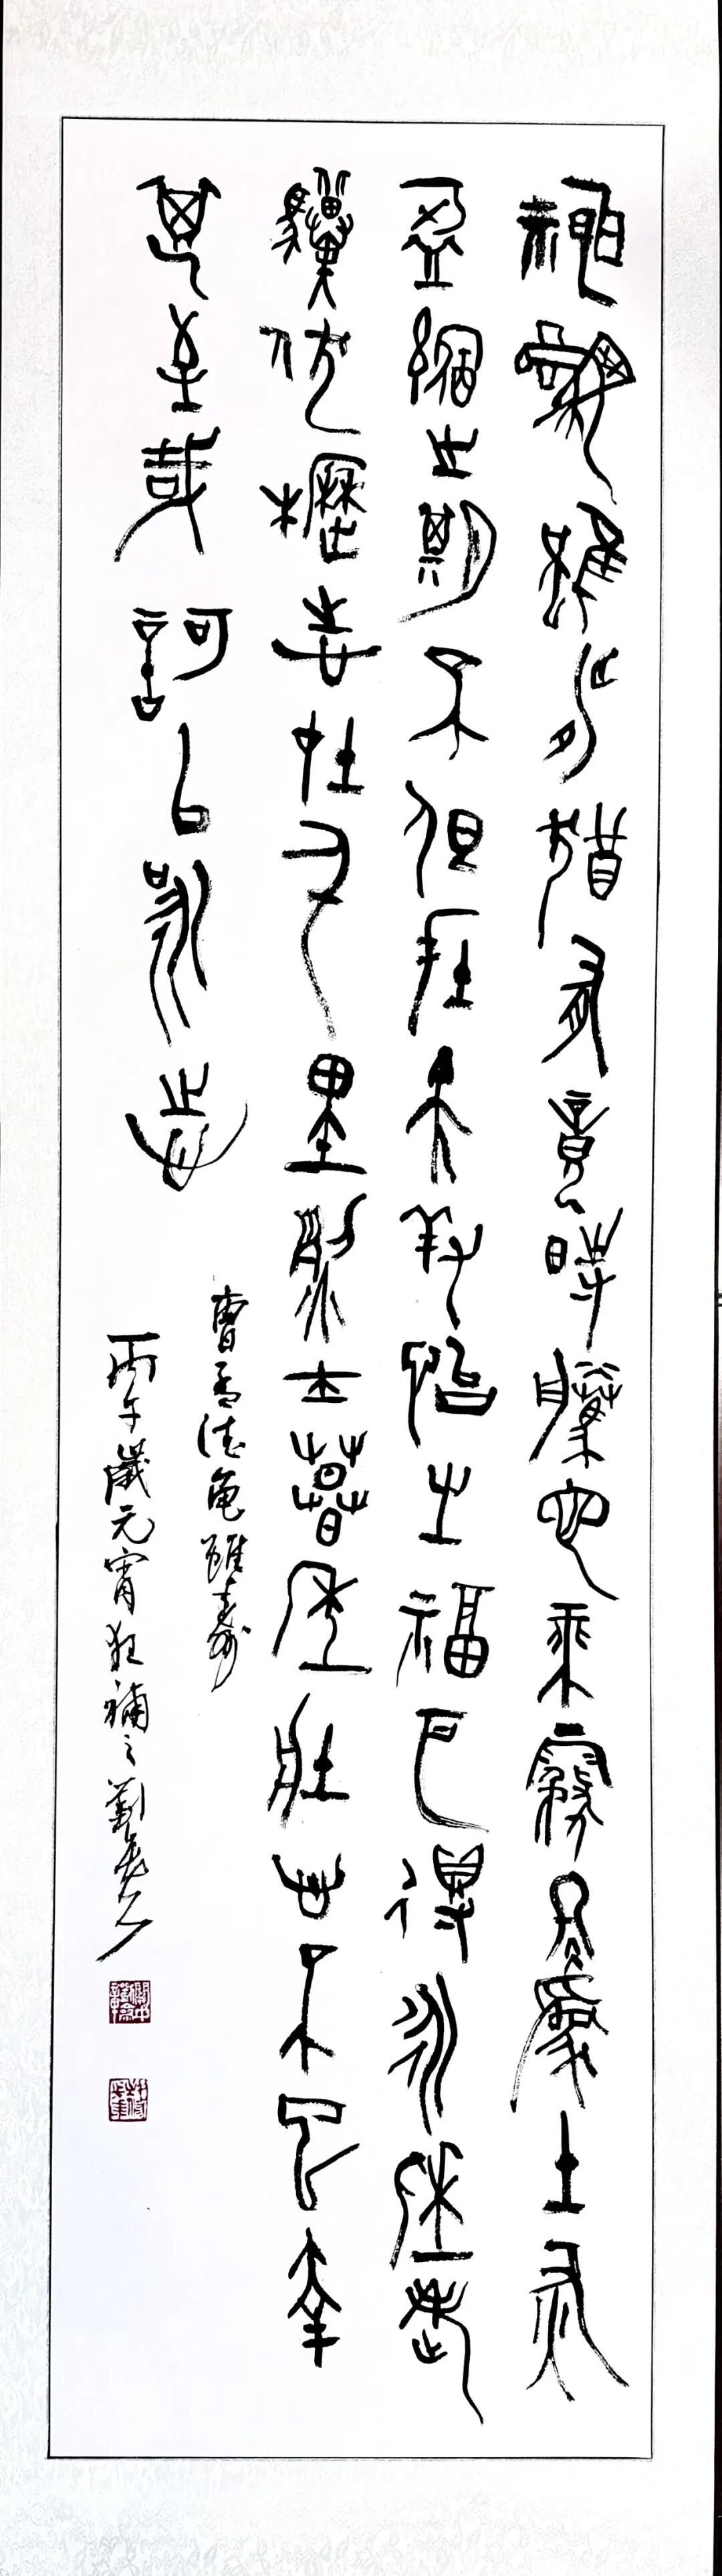 神龜雖壽猶有竟時騰蛇乘霧終為土灰
盈縮之期不但在天養怡之福可得永年老
驥伏櫪志在千里烈士暮年壯心不已幸
甚至哉 歌以詠志
曹孟德龜雖壽
丙午歲元宵狂補之劉